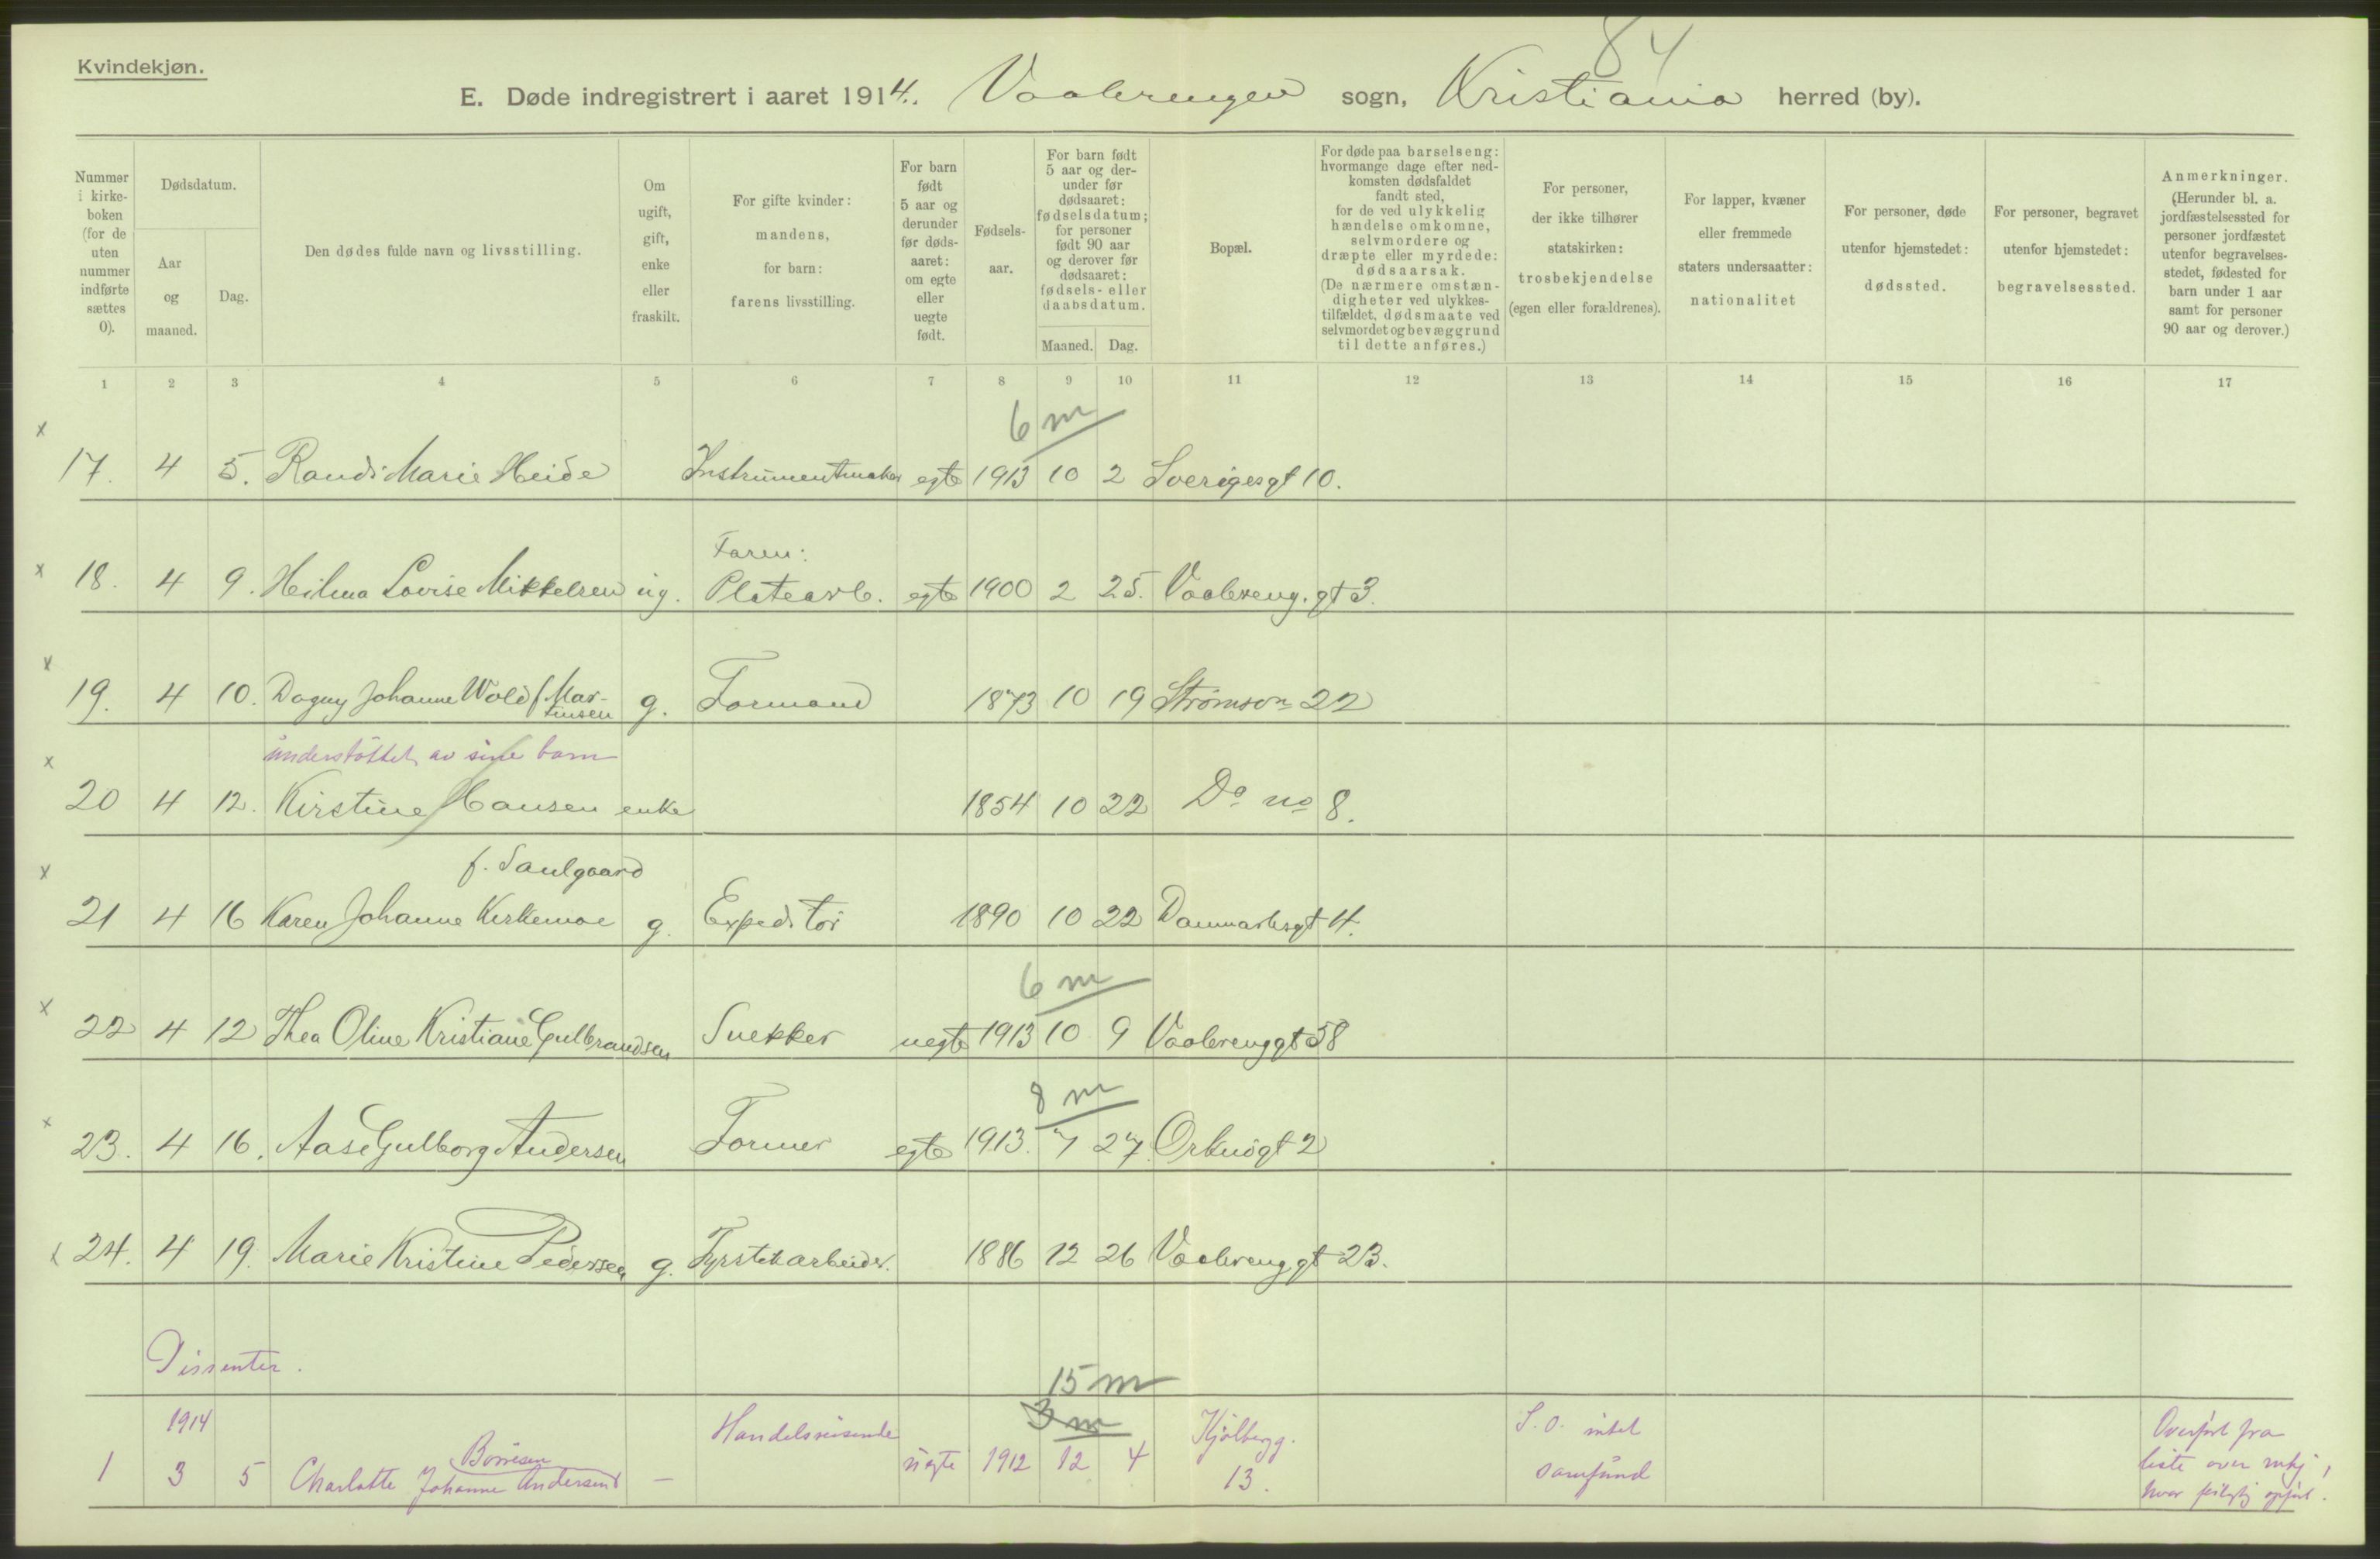 84
Kvindekjøn.
E. Døde indregistrert i aaret 1914. Vaalerengen sogn, Kristiania herred (by).
Nummer i kirke-boken (for de uten nummer indførte sættes 0).
Dødsdatum.
Aar og maaned.
Dag.
Den dødes fulde navn og livsstilling.
Om ugift, gift, enke eller fraskilt.
For gifte kvinder: mandens, for barn: farens livsstilling.
For barn født 5 aar og derunder før døds-aaret: om egte eller uegte født.
Fødsels-aar.
For barn født 5 aar og der-under før dødsaaret: fødselsdatum; for personer født 90 aar og derover før dødsaaret: fødsels- eller daabsdatum.
Maaned. Dag.
Bopæl.
For døde paa barselseng: hvormange dage efter ned-komsten dødsfaldet fandt sted, for de ved ulykkelig hændelse omkomne, selvmordere og dræpte eller myrdede: dødsaarsak. (De nærmere omstæn-digheter ved ulykkes-tilfældet, dødsmaate ved selvmordet og bevæggrund til dette anføres.)
For personer, der ikke tilhører statskirken: trosbekjendelse (egen eller forældrenes).
For lapper, kvæner eller fremmede staters undersaatter: nationalitet
For personer, døde utenfor hjemstedet: dødssted.
For personer, begravet utenfor hjemstedet: begravelsessted.
Anmerkninger. (Herunder bl. a. jordfæstelsessted for personer jordfæstet utenfor begravelses-stedet, fødested for barn under 1 aar samt for personer 90 aar og derover.)
1 2 3 4 5 6 7 8 9 10 11 12 13 14 15 16 17
6 m
x 17. 4 5. Randi Marie Heide Instrumentmaker egte 1913 10 2 Sverigesgt 10.
Faren:
x 18. 4 9. Heilma Lovise Mikkelsen ug. Platearb. egte 1900 2 25. Vaalereng. gt 3.
x 19. 4 10. Dagny Johanne Wold f. Mar-tinsen g. Formand 1873 10 19 Strømsv 22
understöttet av sine barn
x 20 4 12. Kirstine Hansen enke 1854 10 22 Do no 8.
f. Saulgaard
x 21 4 16 Karen Johanne Kirkemoe g. Expeditör 1890 10 22 Danmarksgt 4.
6 m
x 22 4 12 Thea Oline Kristiane Gulbrandsen Snekker uegte 1913 10 9 Vaalerenggt 58
8 m
x 23. 4 16. Aase Gulborg Andersen Former egte 1913. 7 27. Orknögt 2
x 24. 4 19. Marie Kristine Pedersen g. Fyrstikarbeider. 1886 12 26 Vaalerenggt 23.
Dissenter.
15 m
3 m
1914
1 3 5 Charlotte Johanne Andersen Borresen — Handelsreisende uegte 1912 12 4 Kjölbergg. 13. S. O. intet samfund
Overfört fra
liste over mkj,
hvor feilagtig opfört.